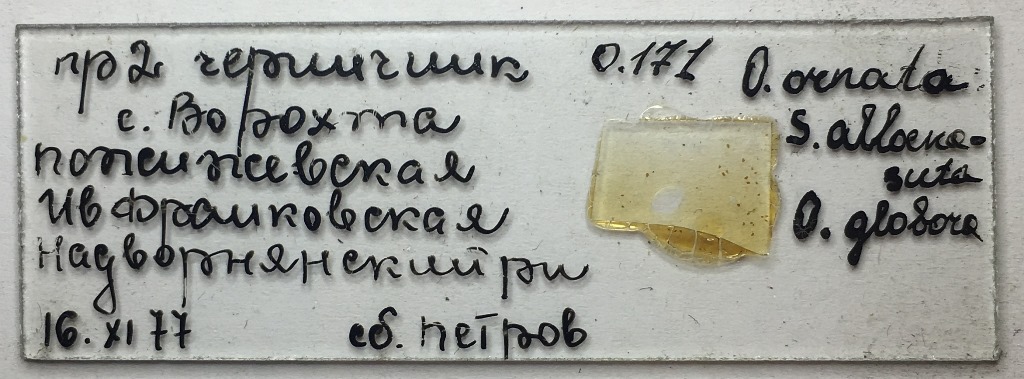 пр 2 черничник
с. Ворохта
пожижевская
Ив Франковская
Надворнянский рн
16. XI 77 сб. Петров
0.171
O. ornata
S. allocea-
suta
O. globosa